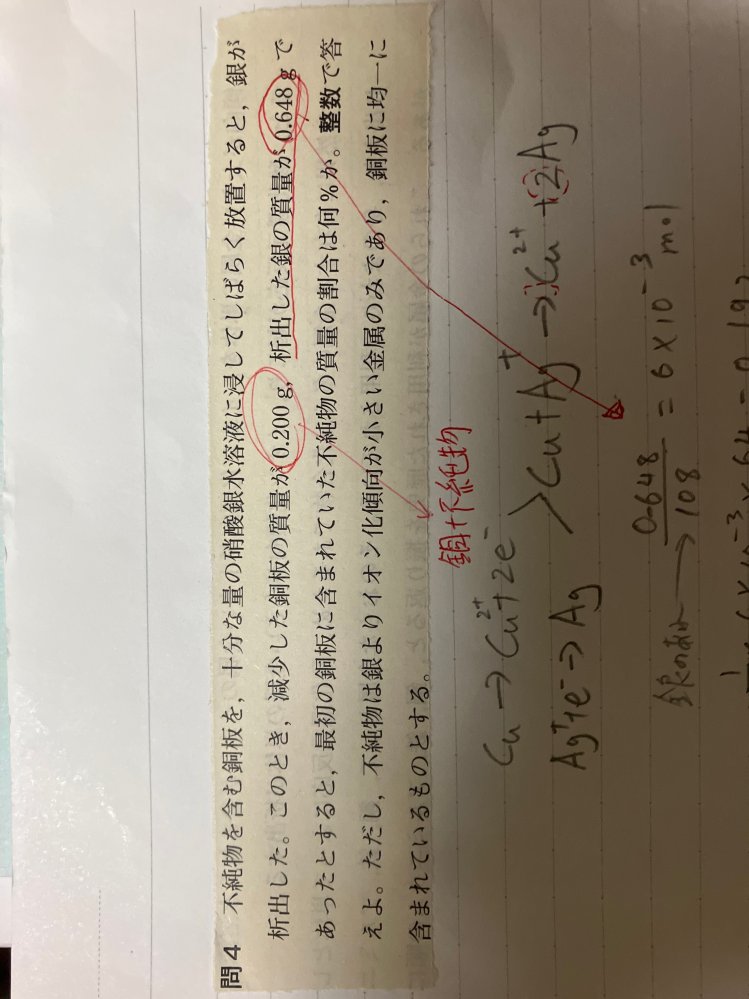 問4 不純物を含む銅板を，十分な量の硝酸銀水溶液に浸してしばらく放置すると，銀が
析出した。このとき，減少した銅板の質量が0.200 g，析出した銀の質量が0.648 gで
あったとすると，最初の銅板に含まれていた不純物の質量の割合は何％か。整数で答
えよ。ただし，不純物は銀よりイオン化傾向が小さい金属のみであり，銅板に均一に
含まれているものとする。
銅+不純物
Cu→Cu²⁺+2e⁻
Ag⁺+e⁻→Ag
Cu+Ag⁺→Cu²⁺+2Ag
銀のあれ→0.648/108=6×10⁻³mol